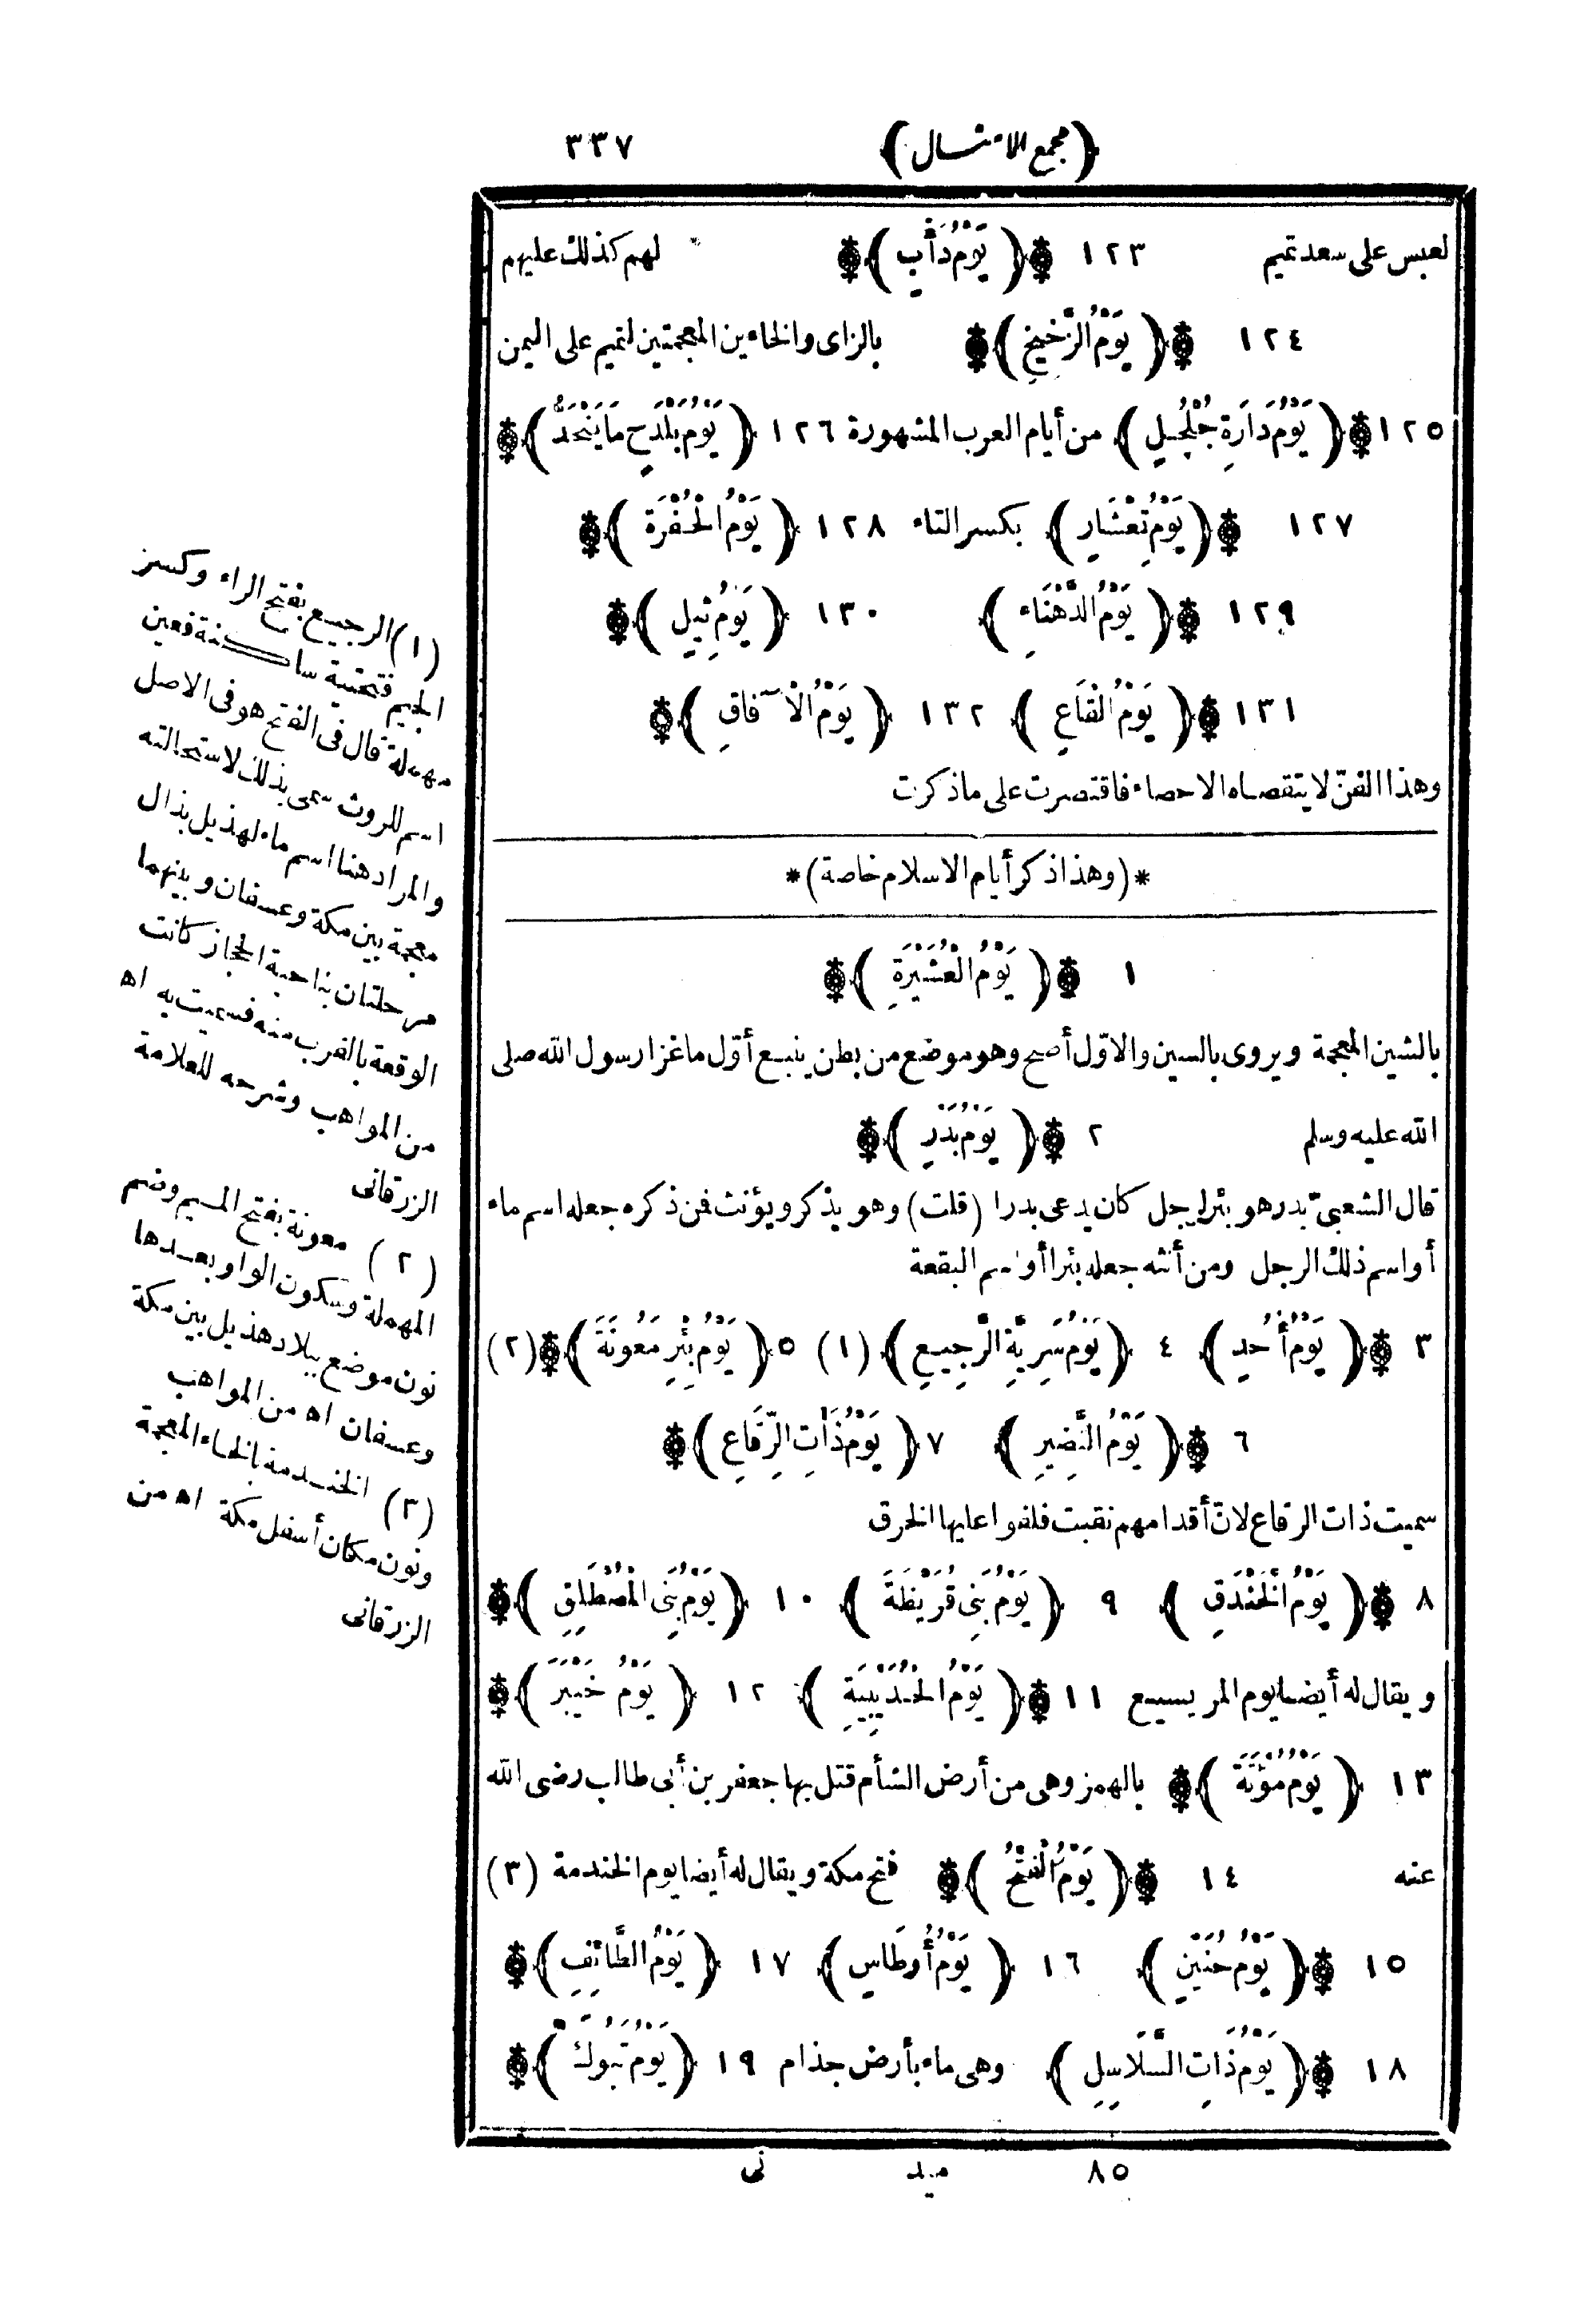 ﴿مجمع الامثال﴾ ٣٣٧
لعبس على سعد تميم ١٢٣ ﴿يَوْمُ دَأْبٍ﴾ لهم كذلك عليهم
١٢٤ ﴿يَوْمُ الزَّخِيخِ﴾ بالزاى والخاءين المعجمتين لتميم على اليمن
١٢٥ ﴿يَوْمُ دَارَةِ جُلْجُلٍ﴾ من أيام العرب المشهورة ١٢٦ ﴿يَوْمُ بَلْدَحٍ﴾
١٢٧ ﴿يَوْمُ تِعْشَارٍ﴾ بكسر التاء ١٢٨ ﴿يَوْمُ الْحُفْرَةِ﴾
١٢٩ ﴿يَوْمُ الدَّهْنَاءِ﴾ ١٣٠ ﴿يَوْمُ ثِيلٍ﴾
١٣١ ﴿يَوْمُ الْقَاعِ﴾ ١٣٢ ﴿يَوْمُ الْآفاقِ﴾
وهذا الفنّ لا يتقصاه الاحصاء فاقتصرت على ماذكرت
*(وهذا ذكر أيام الاسلام خاصة)*
١ ﴿يَوْمُ الْعُشَيْرَةِ﴾
بالشين المعجمة ويروى بالسين والاوّل أصح وهو موضع من بطن ينبع أوّل ما غزا رسول الله صلى
الله عليه وسلم ٢ ﴿يَوْمُ بَدْرٍ﴾
قال الشعبىّ بدر هو بئر لرجل كان يدعى بدرا (قلت) وهو يذكر ويؤنث فمن ذكره جعله اسم ماء
أو اسم ذلك الرجل ومن أنثه جعله بئرا أو اسم البقعة
٣ ﴿يَوْمُ أُحُدٍ﴾ ٤ ﴿يَوْمُ سَرِيَّةِ الرَّجِيعِ﴾ (١) ٥ ﴿يَوْمُ بِئْرِ مَعُونَةَ﴾ (٢)
٦ ﴿يَوْمُ النَّضِيرِ﴾ ٧ ﴿يَوْمُ ذَاتِ الرِّقَاعِ﴾
سميت ذات الرقاع لانّ أقدامهم نقبت فلفوا عليها الخرق
٨ ﴿يَوْمُ الْخَنْدَقِ﴾ ٩ ﴿يَوْمُ بَنِى قُرَيْظَةَ﴾ ١٠ ﴿يَوْمُ بَنِى الْمُصْطَلِقِ﴾
ويقال له أيضا يوم المريسيع ١١ ﴿يَوْمُ الحُدَيْبِيَةِ﴾ ١٢ ﴿يَوْمُ خَيْبَرَ﴾
١٣ ﴿يَوْمُ مُؤْتَةَ﴾ بالهمز وهى من أرض الشأم قتل بها جعفر بن أبى طالب رضى الله
عنه ١٤ ﴿يَوْمُ الْفَتْحِ﴾ فتح مكة ويقال له أيضا يوم الخندمة (٣)
١٥ ﴿يَوْمُ حُنَيْنٍ﴾ ١٦ ﴿يَوْمُ أَوْطَاسٍ﴾ ١٧ ﴿يَوْمُ الطَّائِفِ﴾
١٨ ﴿يَوْمُ ذَاتِ السَّلَاسِلِ﴾ وهى ماء بأرض جذام ١٩ ﴿يَوْمُ تَبُوكَ﴾
٨٥ ميد نى
(١) الرجيع بفتح الراء وكسر
الجيم فتحتية ساكنة فعين
مهملة قال فى الفتح هو فى الاصل
اسم للروث سمى بذلك لاستحالته
والمراد هنا اسم ماء لهذيل بذال
معجمة بين مكة وعسفان وبينهما
مرحلتان بناحية الحجاز كانت
الوقعة بالقرب منه فسميت به اه
من المواهب وشرحه للعلامة
الزرقانى
(٢) معونة بفتح الميم وضم
المهملة وسكون الواو بعدها
نون موضع ببلاد هذيل بين مكة
وعسفان اه من المواهب
(٣) الخندمة بالخاء المعجمة
ونون مكان أسفل مكة اه من
الزرقانى